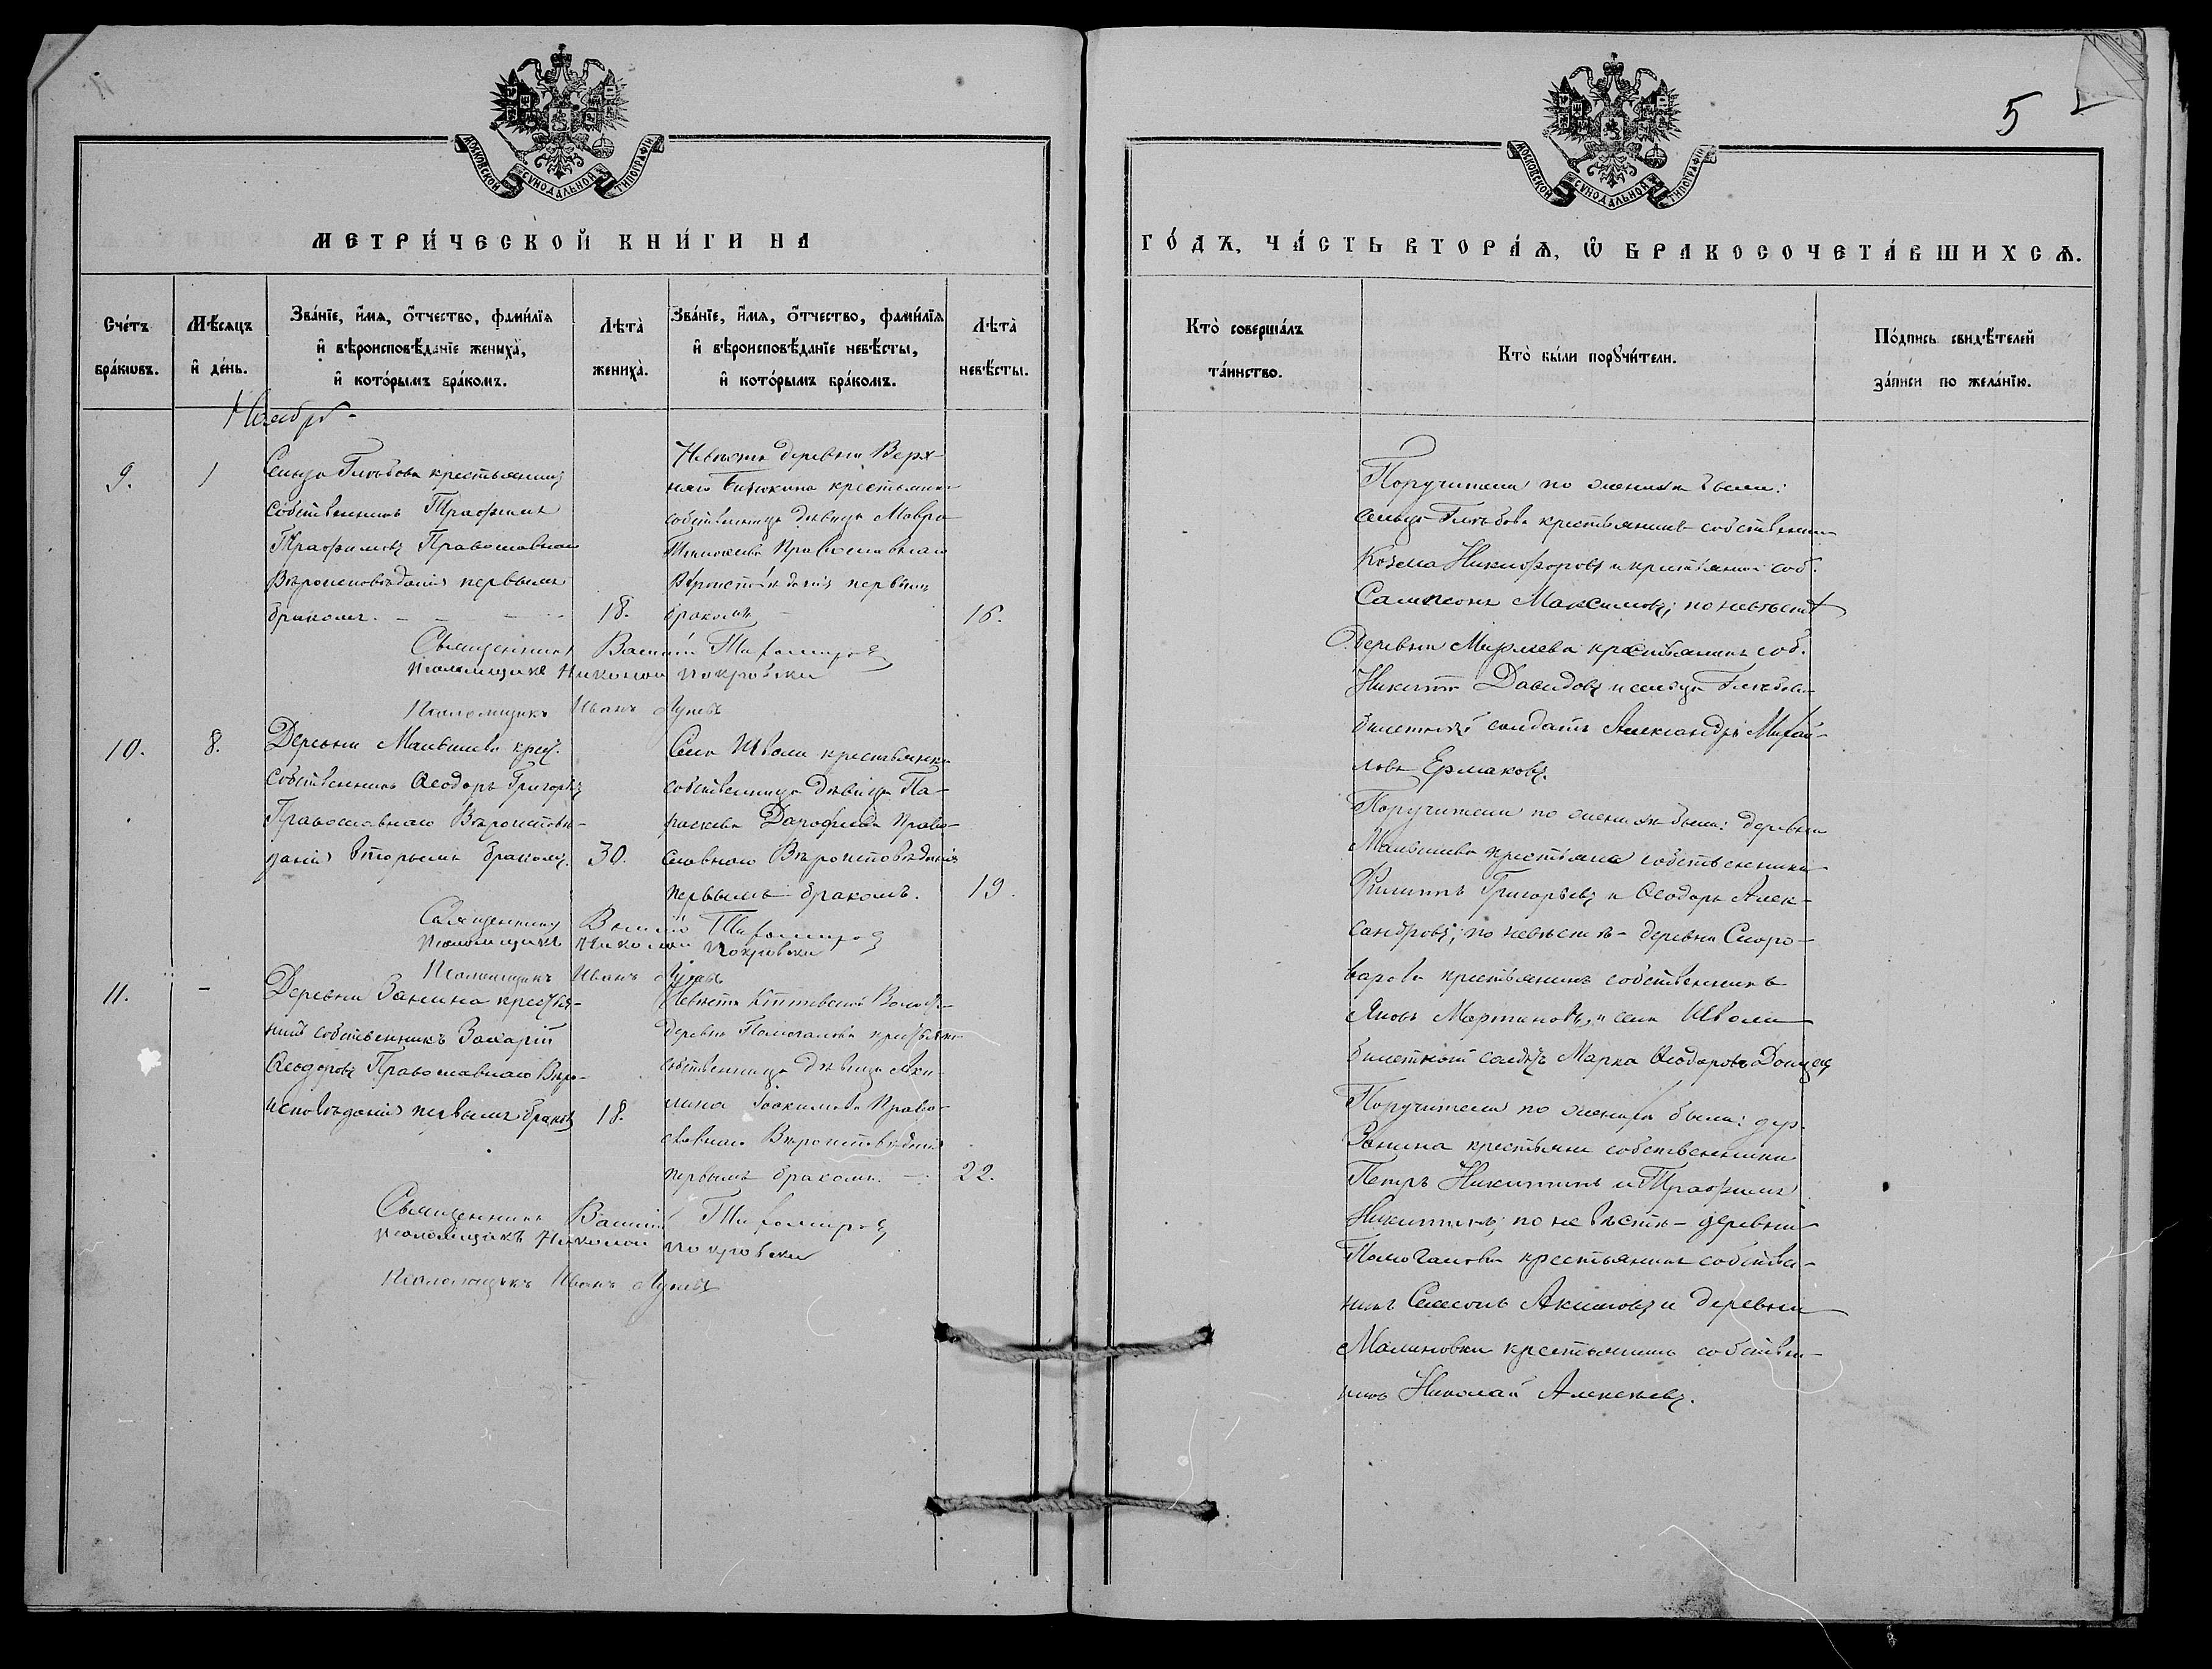 МОСКОВСКОЙ СѴНОДАЛЬНОЙ ТИПОГРАФІИ
МЕТРИ́ЧЕСКОЙ КНИ́ГИ НА
Сче́тъ бра́кѡвъ.
Мѣ́сяцъ и҆ де́нь.
Зва́нїе, и҆́мѧ, ѻ҆́тчество, фами́лїѧ
и҆ вѣроисповѣ́данїе жениха̀,
и҆ кото́рымъ бра́комъ.
Лѣта̀ жениха̀.
Зва́нїе, и҆́мѧ, ѻ҆́тчество, фами́лїѧ
и҆ вѣроисповѣ́данїе невѣ́сты,
и҆ кото́рымъ бра́комъ.
Лѣта̀ невѣ́сты.
Ноябрь
9.
1
Сельца Глѣбова крестьянинъ
собственникъ Трофимъ
Трофимовъ Православнаго
Вѣроисповѣданія первымъ
бракомъ.
18.
Невѣста деревни Верх-
няго крестьянка
собственница дѣвица Мавра
Православнаго
Вѣроисповѣданія первымъ
бракомъ
16.
Священникъ Василій Тихомировъ
Псаломщикъ Николай Покровскій
Псаломщикъ Иванъ Луневъ
10.
8.
Деревни Малышева крес.
собственникъ Ѳеодоръ Григорьевъ
Православнаго Вѣроисповѣ-
данія вторымъ бракомъ.
30.
Села Шволи крестьянка
собственница дѣвица Па-
раскева Дорофеева Право-
славнаго Вѣроисповѣданія
первымъ бракомъ.
19.
Священникъ Василій Тихомировъ
Псаломщикъ Николай Покровскій
Псаломщикъ Иванъ Луневъ
11.
-
Деревни Занина крестья-
нинъ собственникъ Захарій
Ѳеодоровъ Православнаго Вѣро-
исповѣданія первымъ бракомъ
18.
Невѣста Волости
деревни крестьянка
собственница дѣвица Аки-
лина Іоакимова Право-
славнаго Вѣроисповѣданія
первымъ бракомъ.
22.
Священникъ Василій Тихомировъ
Псаломщикъ Николай Покровскій
Псаломщикъ Иванъ Луневъ
5
МОСКОВСКОЙ СѴНОДАЛЬНОЙ ТИПОГРАФІИ
ГО́ДЪ, ЧА́СТЬ ВТОРА́Ѧ, Ѡ҆ БРАКОСОЧЕТА́ВШИХСѦ.
Кто̀ соверша́лъ та́инство.
Кто̀ бы́ли порꙋчи́тели.
По́дпись свидѣ́телей за́писи по жела́нїю.
Поручители по женихѣ были:
сельца Глѣбова крестьянинъ собственникъ
Козьма Никифоровъ и крестьянинъ соб.
Сампсонъ Максимовъ; по невѣстѣ
деревни крестьянинъ соб.
Никита Давидовъ и сельца Глѣбова
билетный солдатъ Александръ Михай-
ловъ Ермаковъ.
Поручители по женихѣ были: деревни
Малышева крестьяне собственники
Филиппъ Григорьевъ и Ѳеодоръ Алек-
сандровъ; по невѣстѣ - деревни Скоро-
варова крестьянинъ собственникъ
Яковъ Мартиновъ, и села Шволи
билетный солдатъ Марко Ѳеодоровъ
Поручители по женихѣ были: дер.
Занина крестьяне собственники
Петръ Никитинъ и Трофимъ
Никитинъ; по невѣстѣ - деревни
крестьянинъ собствен-
никъ Самсонъ Акимовъ и деревни
Малиновки крестьянинъ собствен-
никъ Николай Алексѣевъ.